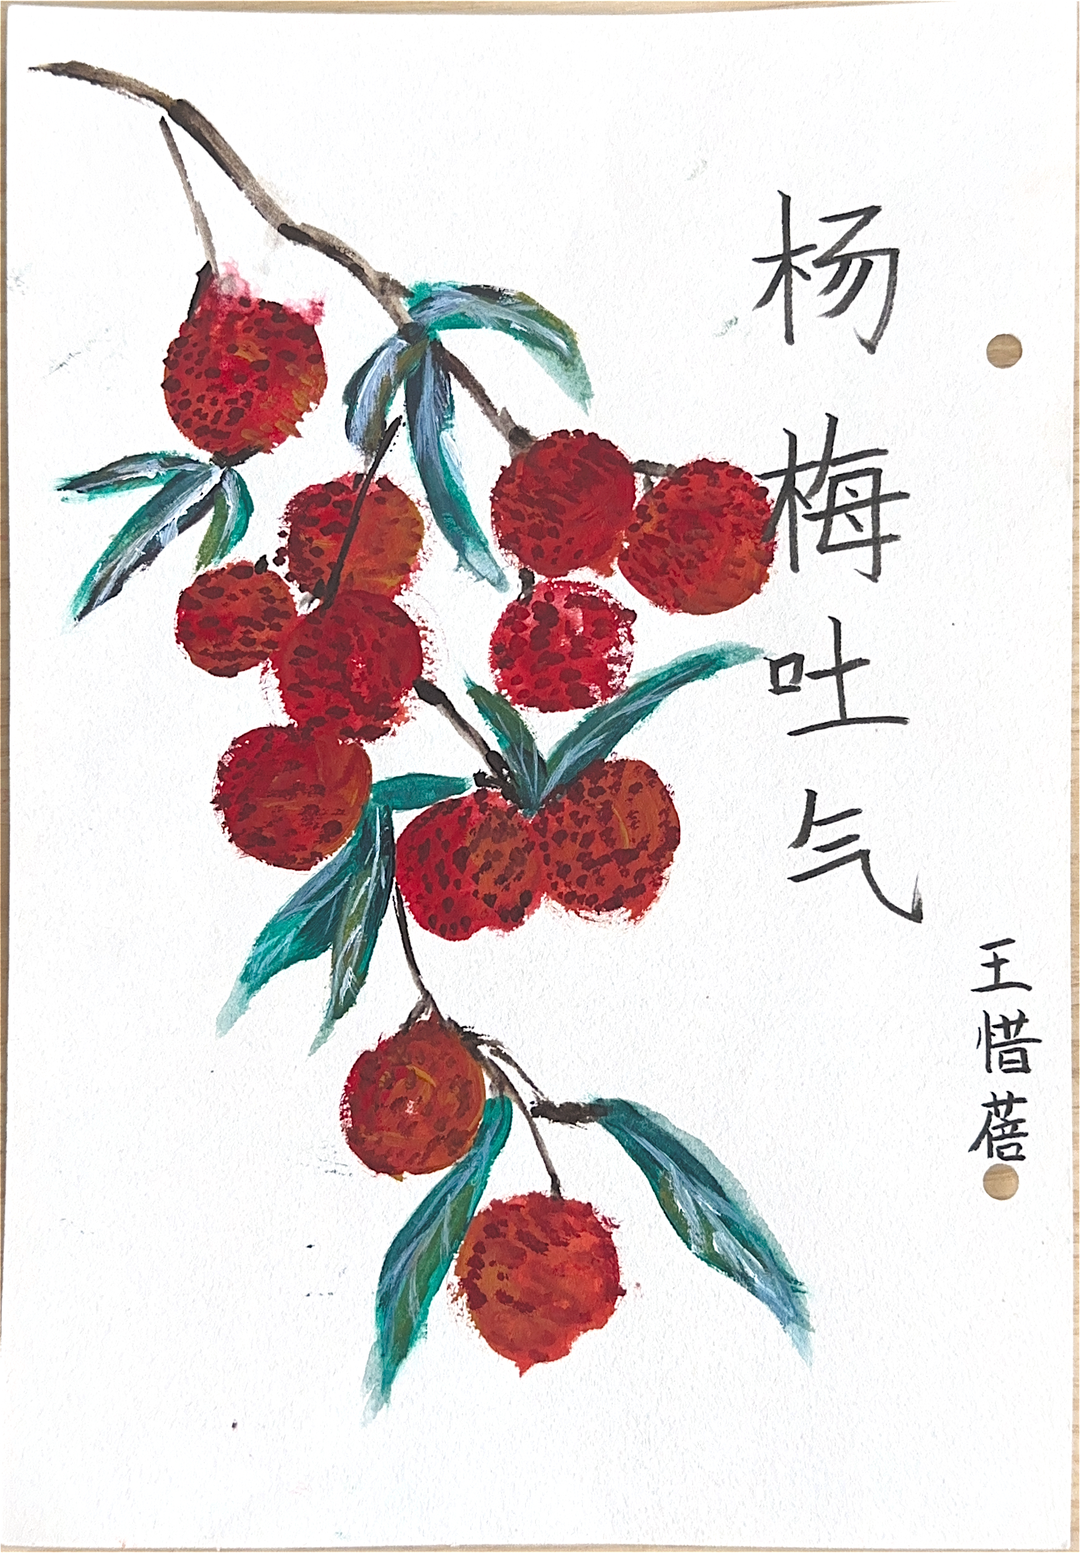 杨梅吐气
王惜蓓